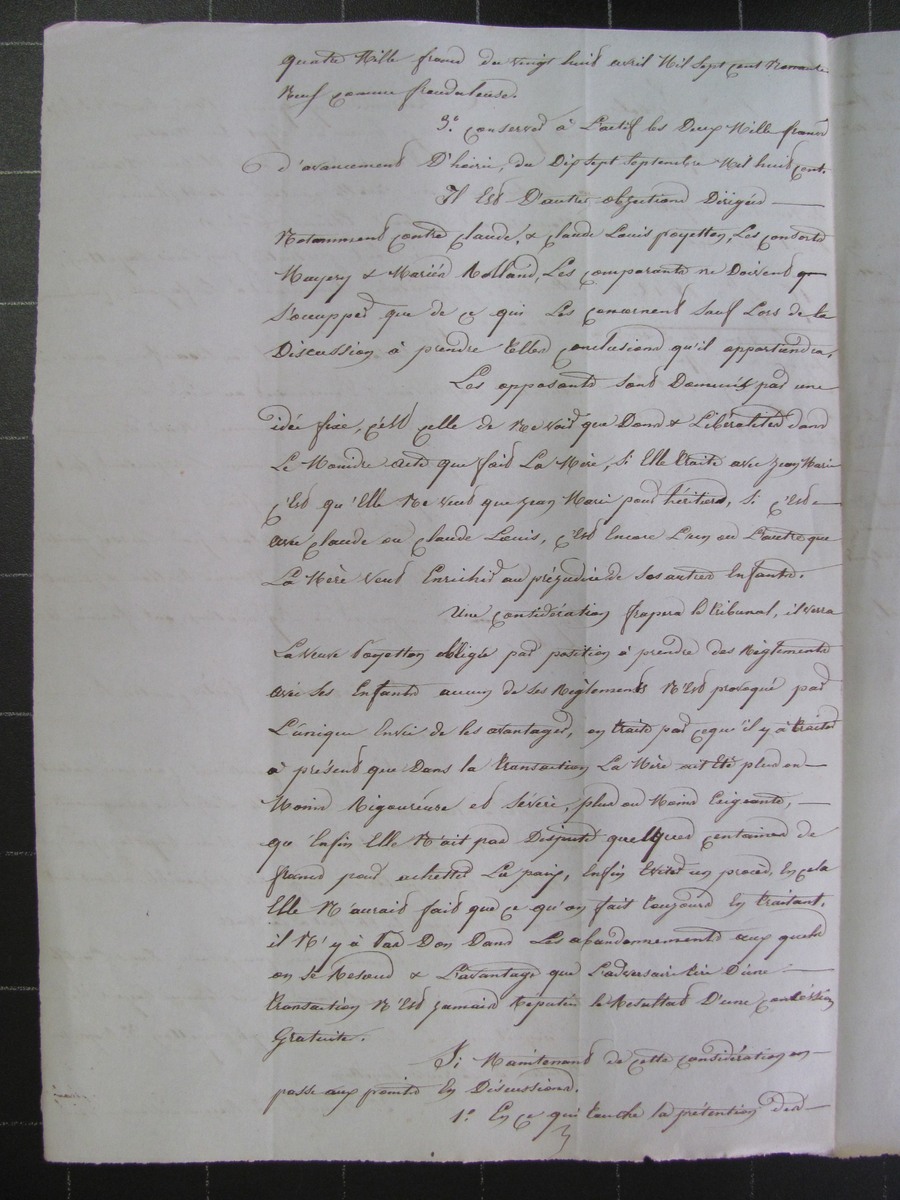 quatre Mille francs du vingt huit avril Mil sept cent Nonante
Neuf comme frauduleuse.
3.° conserver à L'actif les Deux Mille francs
d'avancement D'hoirie, du Dix sept septembre Mil huit cent.
Il Est D'autres objections Dirigées —
Notamment contre claude, & claude Louis poyetton, Les consorts
Mayery & Mariés Rolland, Les comparants ne Doivent
s'occupper que de ce qui Les concernent sauf Lors de la
Discussion à prendre telles conclusions qu'il appartiendra,
Les opposants sont Dominés par une
idée fixe, c'est celle de Ne voir que Dons & Libéralités dans
Le Moindre acte que fait La Mère, si Elle traite avec jean Marie
c'est qu'Elle Ne veut que jean Marie pour héritier, si c'est —
avec claude ou claude Louis, c'est Encore L'un ou L'autre que
La Mère veut Enrichir au préjudice de ses autres Enfants.
Une considération frapera le tribunal, il verra
La veuve Poyetton obligée par position à prendre des Règlements
avec ses Enfants aucun de ses Règlements N'Est provoqué par
L'unique Envie de les avantager, on traite par ce qu'il y à traiter
à présent que Dans la transaction La Mère ait Eté plus ou —
Moins Rigoureuse et sévère, plus ou Moins Exigeante, —
qu'Enfin Elle N'ait pas Disputé quelques centaines de
francs pour achetter La paix, Enfin Eviter un procès, En cela
Elle N'aurait fait que ce qu'on fait toujours En traitant,
il N'y à Pas Don Dans Les abandonnements aux quels
on se Résoud & L'avantage que L'adversaire tire D'une —
transaction N'Est jamais Réputée le Résultat D'une concession
Gratuite.
Si Maintenant de cette considération on —
passe aux points En Discussions.
1.° En ce qui touche la prétention des —